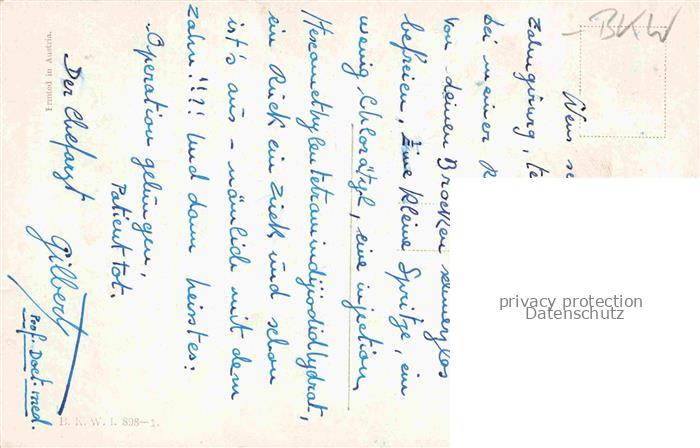 BKW
Wens se
Zahngirurg, te
bei meiner R
von deinen Brocken schmerzlos
befreien, Eine kleine Spritze, ein
wenig Chloräthyl, eine injection,
Hexamethylentetramindijiodidhydrat,
ein Rück ein Zück und schon
ist's aus - nämlich mit dem
zahn!!?! Und dann heisstes:
„Operation gelungen,
Patient tot.
Der Chefarzt Gilbert
Prof. Doct. med.
Printed in Austria.
B. K. W. I. 898-1.
privacy protection
Datenschutz